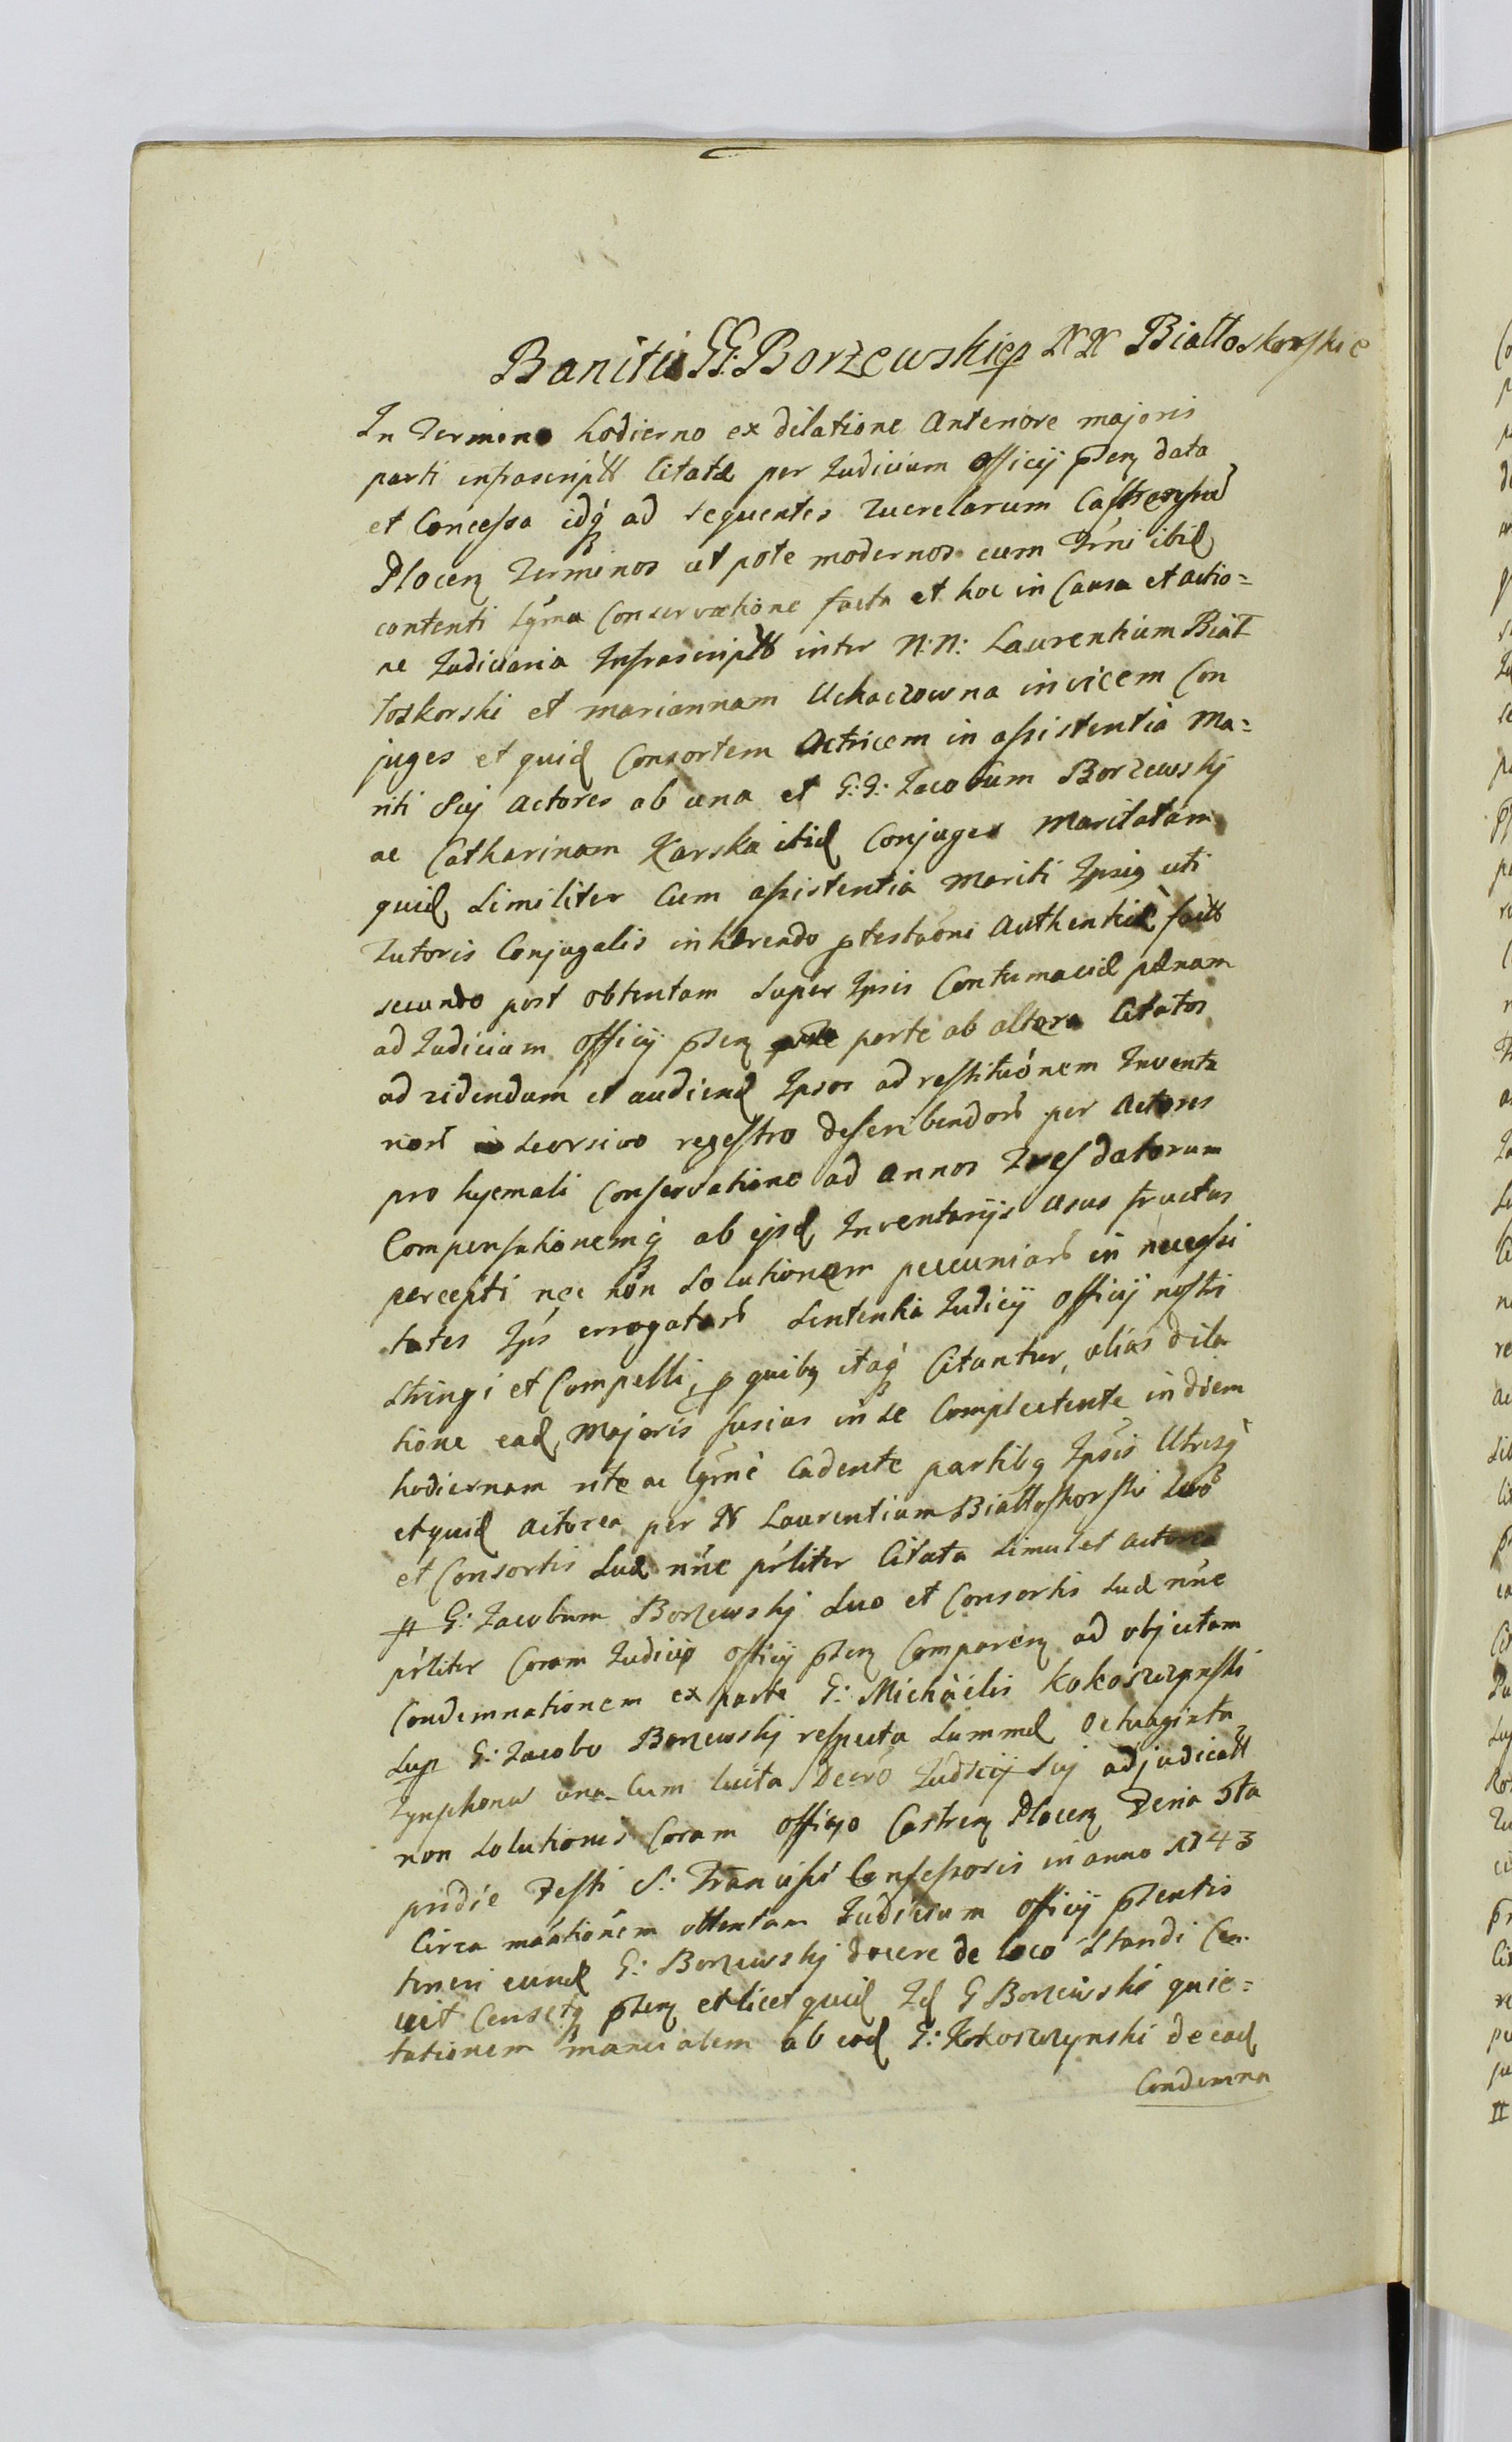 Banitio GG: Borzewskie NN Białłoskorskie
In Termino hodierno ex dilatione Anteriore majoris
parti infrascriptæ Citatæ per Judicium officij pñtem data
et Concessa idq ad sequentes Querelarum Castrensium
Plocen Terminos ut pote modernos cum Trni ibid
contenti lgma Conservatione facta et hoc in Causa et actio=
ne Judiciaria Infrascripta inter N: N: Laurentium Biał
łoskorski et mariannam Uchaczowna invicem Con
juges et quid Consortem Actricem in assistentia Ma=
riti Sui actores ab una et G: G: Jacobum Borzewskj
ac Catharinam Karska itid Conjuges Maritatam
quid Similiter Cum assistentia Mariti Ipsius uti
Tutoris Conjugalis inhærendo ptestaoni Authenticæ factæ
secundo post obtentam super Ipsis Contumaciæ pænam
ad Judicium officij pñtem parte ab altera Citatos
ad videndum et audiend Ipsos ad restituonem Inventa
rior Seorsivo regestro describendor per Actores
pro hyemali Conservatione ad annos Tres datorum
Compensationemq ab ijsd Inventarijs usus fructus
percepti nec non Solutionem pecuniar in necessi
tates Ips errogatar Sententia Judicij officij nostri
Stringi et Compelli, p quibus itaq Citantur, alias dila
tione ead Majoris fusius in se Complectente in diem
hodiernam rite ac lgme Cadente partibus Ipsis Utrisq
et quid actorea per N Laurentium Białłoskorski Suo
et Consortis Suæ nne prliter Citata Simul et actorea
G: Jacobum Borzewskj Suo et Consortis Suæ nne
prliter Coram Judicio officij pñten Comparen ad objectam
Condemnationem ex parte G: Michaëlis Kokoszczynski
Sup G: Jacobo Borzewskj respectu Summæ Octuaginta
Tynphonu una Cum lucta Decro Judicij Sui adjudicatæ
non Solutionis Coram officio Castren Plocen Feria 5ta
pridie Festi S: Francisci Confessoris in anno 1743
Circa mãntionem obtentam Judicium officij pñtentis
teneri eund G: Borzewskj docere de loco Standi Cen
uit Censetq pñten et licet quid Id G Borzewski quie=
tationem manualem ab eod G: Kokoszczynski de ead
Condemna